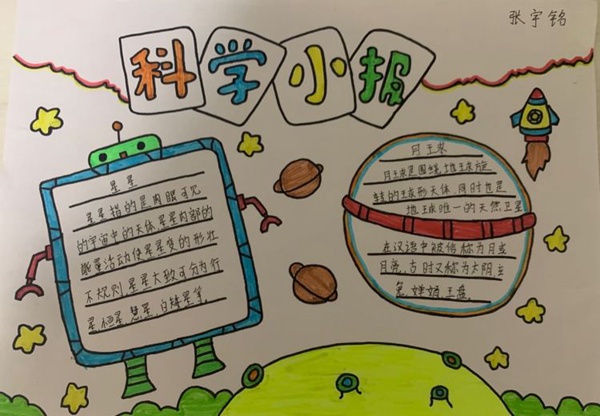 张宇铭
科学小报
星星
星星指的是肉眼可见
的宇宙中的天体星星内部的
能量活动使星星变的形状
不规则星星大致可分为行
星恒星彗星白矮星等
月球
月球是围绕地球旋
转的球形天体同时也是
地球唯一的天然卫星
在汉语中被俗称为月或
月亮古时又称为太阴玄
兔婵娟玉盘